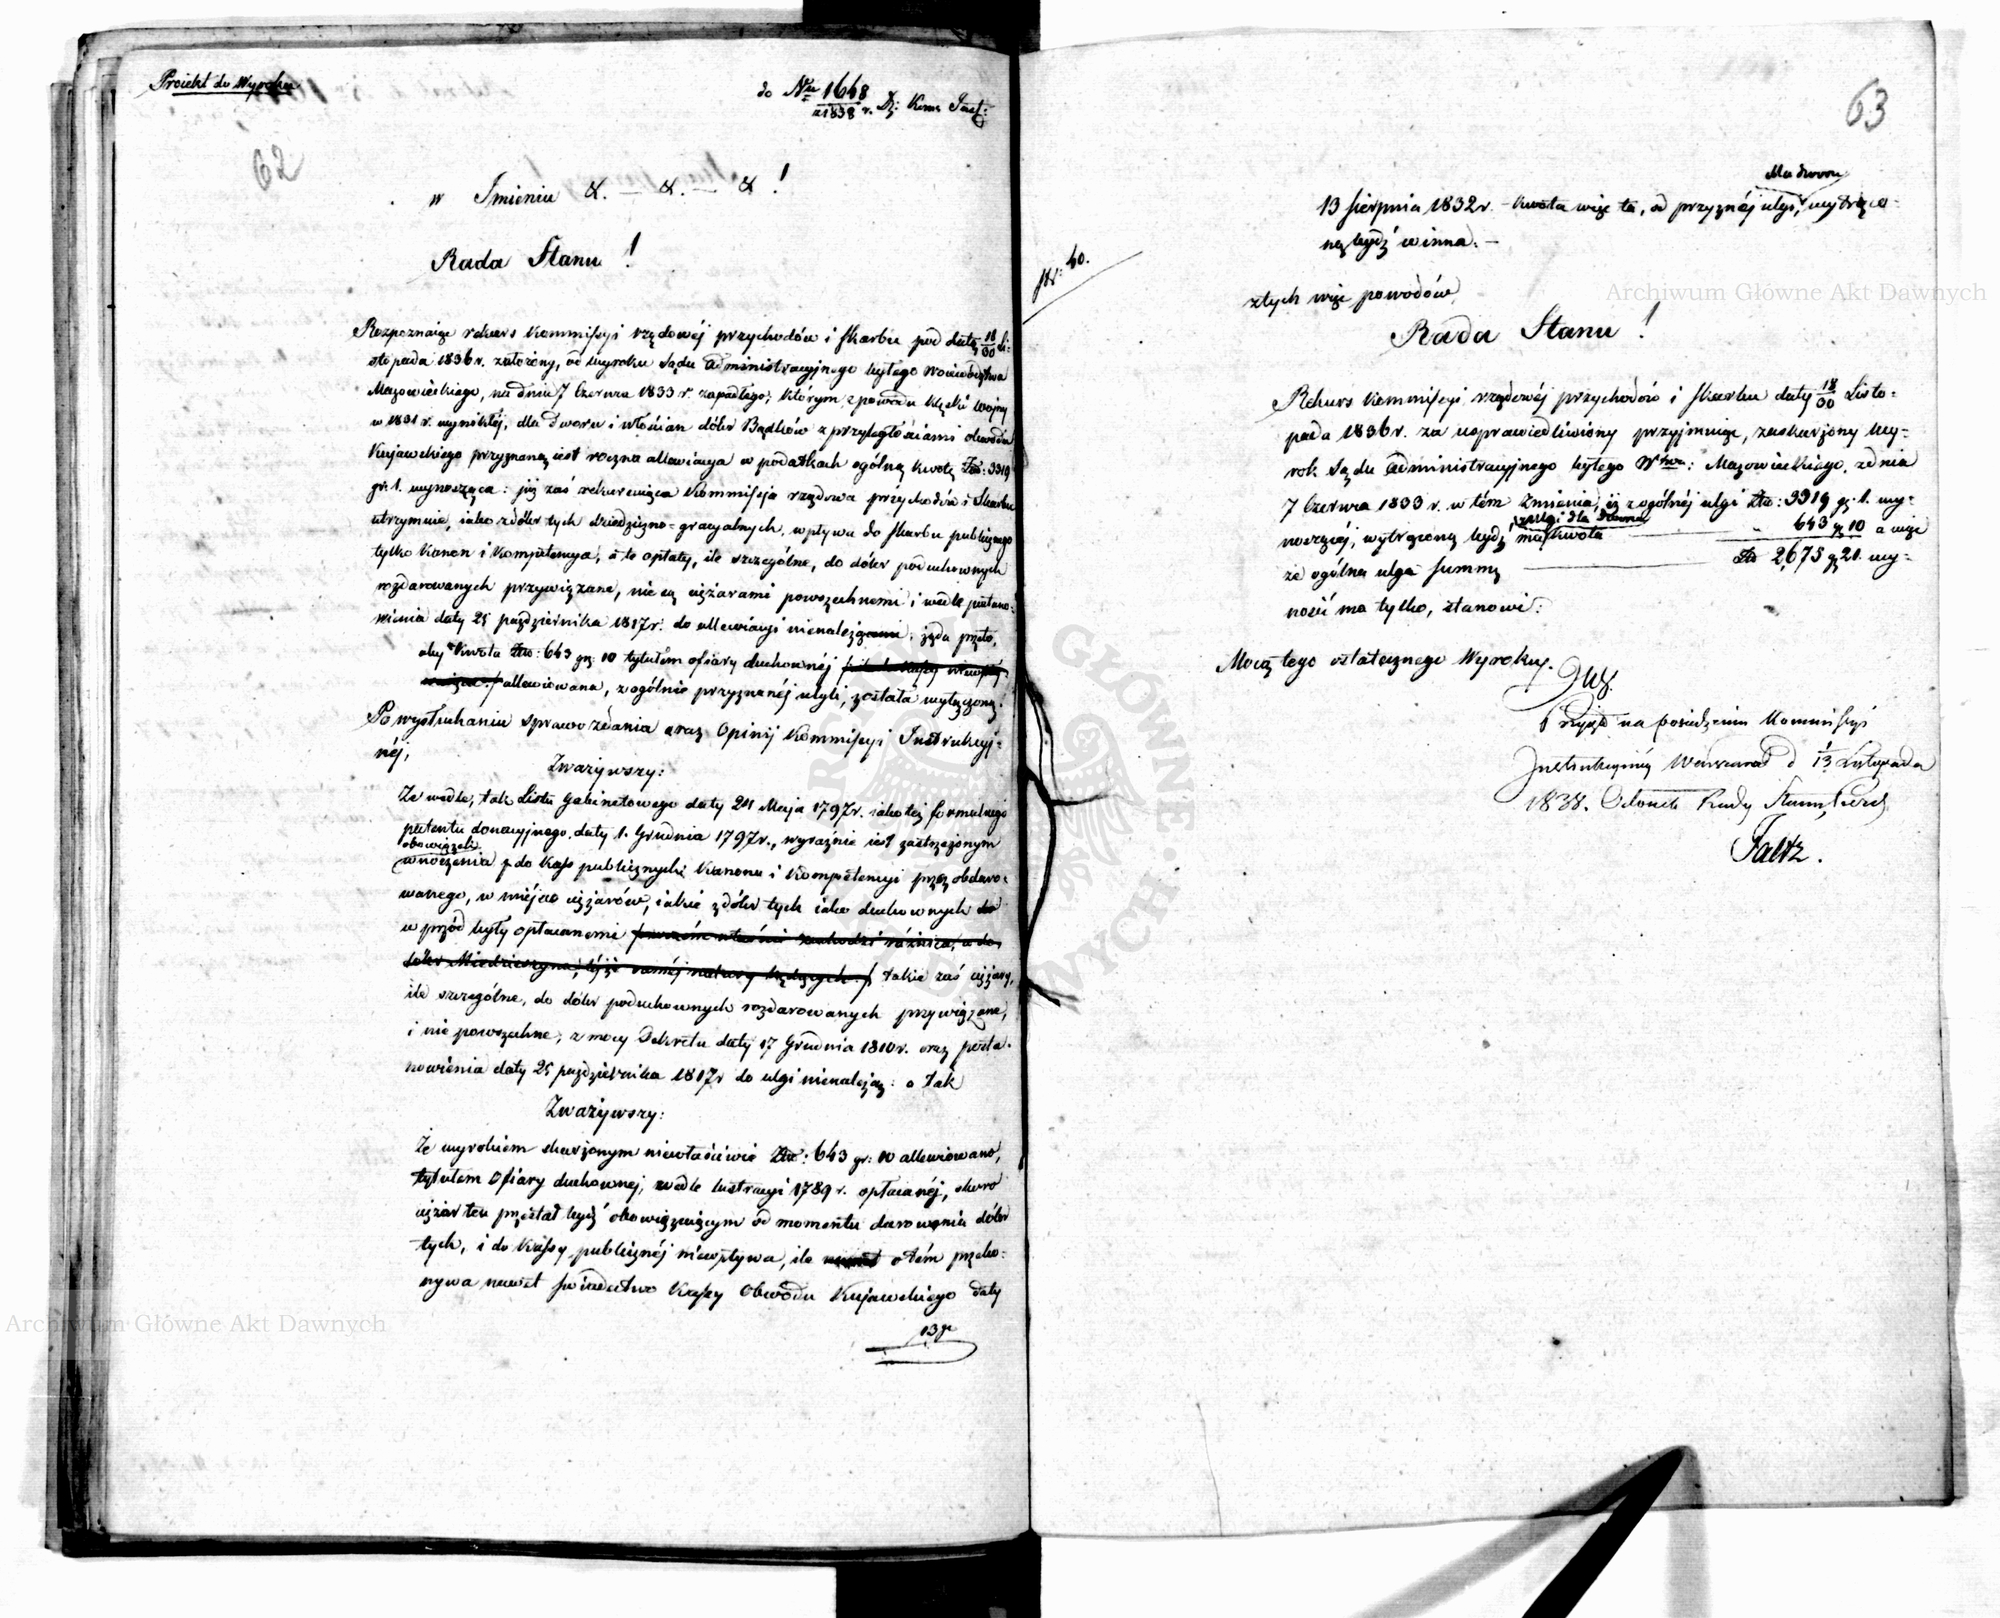 Proiekt do Wyroku
do Nru 1648
a 1838 r. Dz: Kom: Inst:
62
w Imieniu &. — &. — &!
Rada Stanu!
Rozpoznaiąc rekurs Kommissyi rządowéj przychodów i skarbu pod datą 18/30 Li-
stopada 1836 r. założony, od wyroku Sądu Administracyjnego byłego Woiewództwa
Mazowieckiego, na dniu 7 Czerwca 1833 r. zapadłego; którym z powodu klęski wojny
w 1831 r. wynikłéj, dla dworu i włościan dóbr Bądków z przyległościami obwodu
Kujawskiego przyznaną iest roczna allewiacya w podatkach ogólną kwotę Złp: 3319
gr. 1. wynosząca: gdy zaś rekuruiąca Kommissja rządowa przychodów i Skarbu
utrzymuie, iako z dóbr tych dziedziczno-gracyalnych, wpływa do skarbu publicznego
tylko Kanon i Kompetencya, a te opłaty, ile szczególne, do dóbr poduchownych
rozdarowanych przywiązane, nie są ciężarami powszechnemi i wedle postano-
wienia daty 25 października 1817 r. do allewiacyi nienależącemi; żąda przeto,
aby kwota Złp: 643 gr. 10 tytułem ofiary duchownéj
allewiowana, z ogólnie przyznanéj ulgi, została wyłączoną.
Po wysłuchaniu sprawozdania oraz Opinij Kommissyi Instrukcyj-
néj,
Zważywszy:
Że wedle, tak Listu Gabinetowego daty 24 Maja 1797 r. iako téż formalnego
patentu donacyjnego daty 1. Grudnia 1797 r., wyraźnie iest zastrzeżonym
obowiązek
wnoszenia do Kass publicznych Kanonu i Kompetencyi przez obdaro-
wanego, w miejsce ciężarów, iakie z dóbr tych iako duchownych
w przód były opłacanemi
takie zaś ciężary,
ile szczególne, do dóbr poduchownych rozdarowanych przywiązane,
i nie powszechne, z mocy Dekretu daty 17 Grudnia 1810 r. oraz posta-
nowienia daty 25 października 1817 r do ulgi nienależą: a tak
Zważywszy:
Że wyrokiem skarżonym niewłaściwie Złp: 643 gr: 10 allewiowano,
tytułem Ofiary duchownej, wedle lustracyi 1789 r. opłacanéj, skoro
ciężar ten przestał bydź obowiązuiącym od momentu darowania dóbr
tych, i do Kassy publicznéj niewpływa, ile o tém przeko-
nywa nawet świadectwo Kassy Obwodu Kujawskiego daty
13go
63
str: 40.
dla dworu
13 sierpnia 1832 r. – kwota więc ta, od przyznéj ulgi, wytrąco-
ną bydź winna. –
z tych więc powodów,
Rada Stanu!
Rekurs Kommissyi rządowéj przychodów i skarbu daty 18/30 Listo-
pada 1836 r. za usprawiedliwiony przyjmuiąc, zaskarżony wy-
rok Sądu Administracyjnego byłego Wtwa: Mazowieckiego, z dnia
7 Czerwca 1833 r. w tém zmienia, iż z ogólnéj ulgi Złp: 3319 gr. 1. wy-
z ulgi dla dworu
noszącéj, wytrąconą bydź ma kwota — „ 643 gr 10 a więc
że ogólna ulga summę — Złp 2,675 gr 21. wy-
nosić ma tylko, stanowi:
Mocą tego ostatecznego Wyroku.
Przyjęto na posiedzeniu Kommissyi
Instrukcyjnéj w Warszawie d 1/13 Listopada
1838. Członek Rady Stanu, Prezd.
Faltz.
Archiwum Główne Akt Dawnych
Archiwum Główne Akt Dawnych